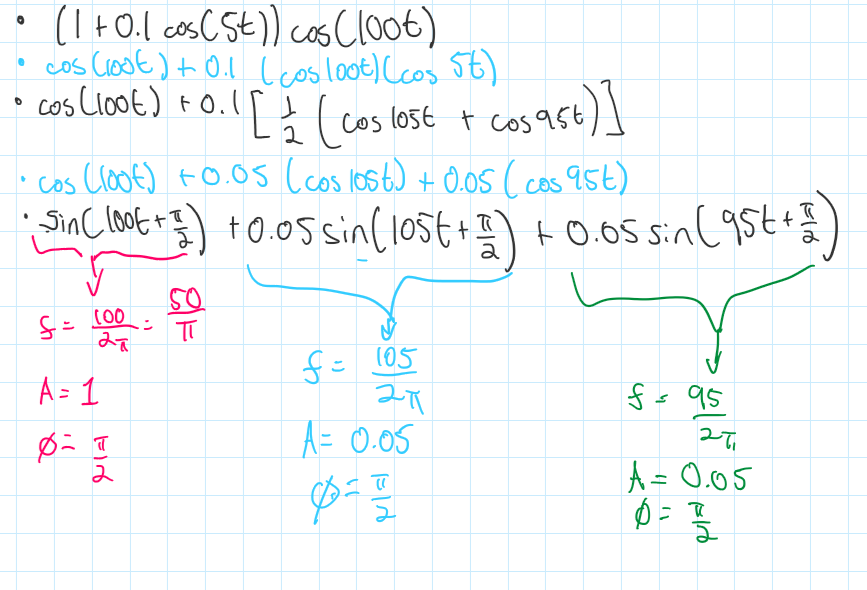 • (1 + 0.1 cos(5t)) cos(100t)
• cos(100t) + 0.1 (cos100t)(cos 5t)
• cos(100t) + 0.1 [ 1/2 (cos 105t + cos 95t) ]
• cos(100t) + 0.05 (cos 105t) + 0.05 (cos 95t)
• sin(100t + π/2) + 0.05 sin(105t + π/2) + 0.05 sin(95t + π/2)
f = 100/2π = 50/π
A = 1
φ = π/2
f = 105/2π
A = 0.05
φ = π/2
f = 95/2π
A = 0.05
φ = π/2